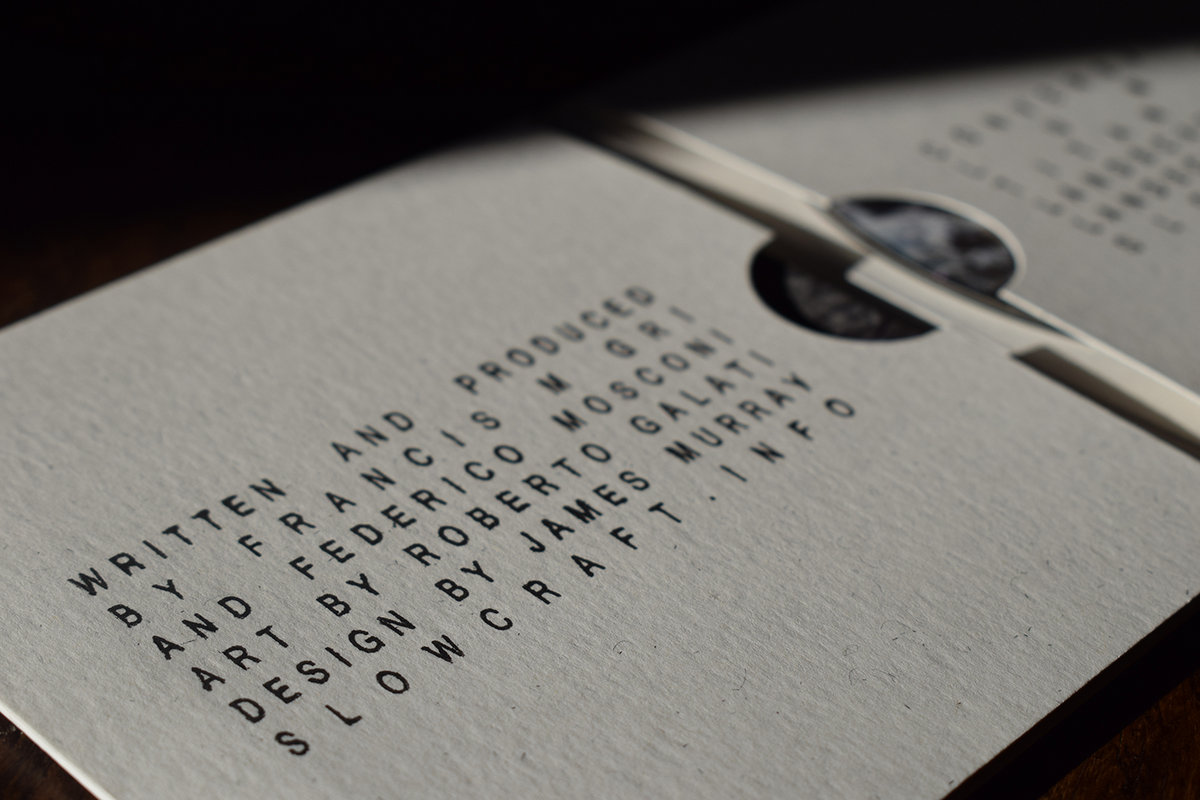 WRITTEN AND PRODUCED
BY FRANCIS M GRI
AND FEDERICO MOSCONI
ART BY ROBERTO GALATI
DESIGN BY JAMES MURRAY
SLOWCRAFT.INFO